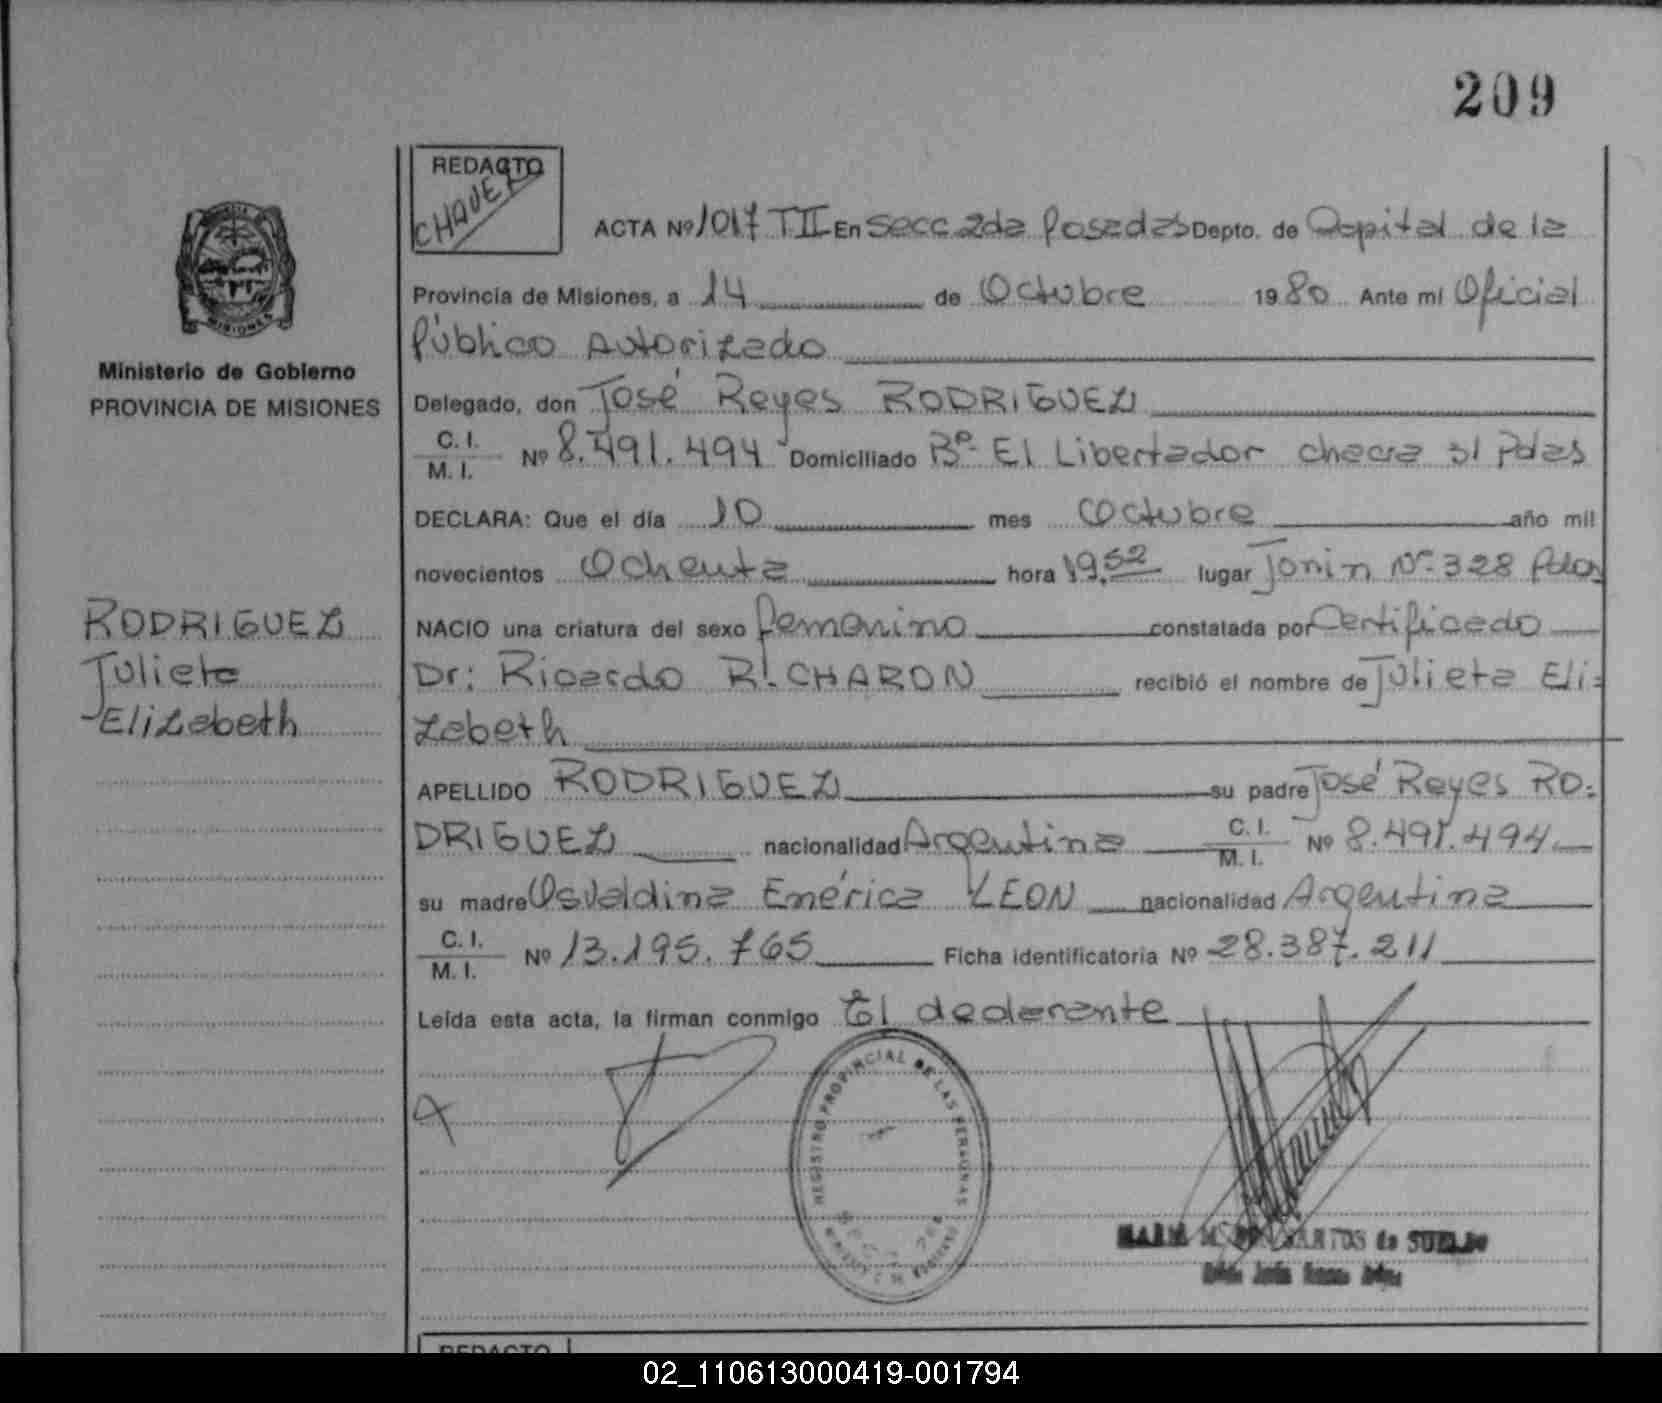 209
REDACTO
CHAVEZ
ACTA Nº 1017 TII En Secc 2da Posadas Depto. de Capital de la
Provincia de Misiones, a 14 de Octubre 1980 Ante mi Oficial
Público Autorizado
MISIONES
Ministerio de Gobierno
PROVINCIA DE MISIONES
Delegado, don José Reyes RODRIGUEZ
C. I.
M. I. Nº 8.491.494 Domiciliado Bº El Libertador chacra 31 Pdas
DECLARA: Que el día 10 mes Octubre año mil
novecientos Ochenta hora 19,52 lugar Junin Nº 328 Pdas
RODRIGUEZ
Julieta
Elizabeth
NACIO una criatura del sexo femenino constatada por Certificado
Dr: Ricardo R. CHARON recibió el nombre de Julieta Eli-
zabeth
APELLIDO RODRIGUEZ su padre José Reyes RO-
DRIGUEZ nacionalidad Argentina C. I. M. I. Nº 8.491.494
su madre Osvaldina Emérica LEON nacionalidad Argentina
C. I.
M. I. Nº 13.195.765 Ficha identificatoria Nº 28.387.211
Leída esta acta, la firman conmigo El declarante
REGISTRO PROVINCIAL DE LAS PERSONAS
SUELDO
REDACTO
02_110613000419-001794